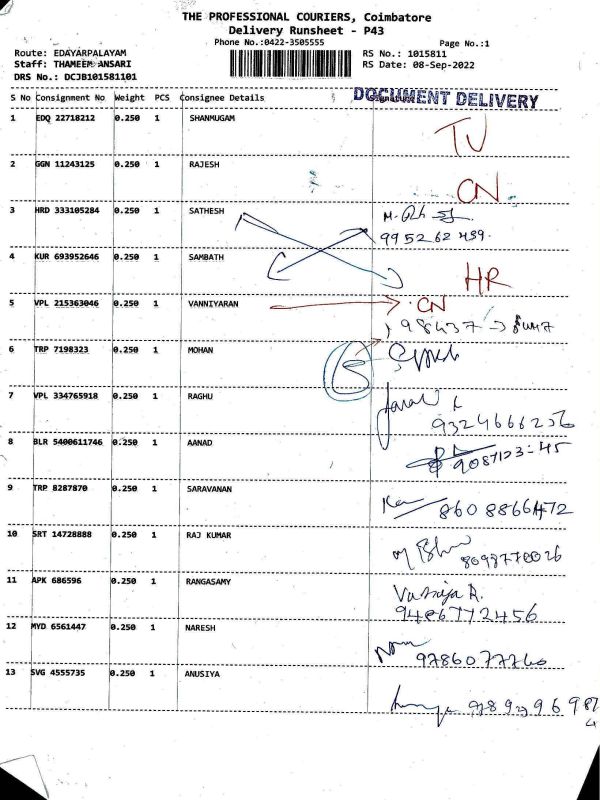 THE PROFESSIONAL COURIERS, Coimbatore
Delivery Runsheet - P43
Phone No.:0422-3505555
Page No.:1
Route: EDAYARPALAYAM RS No.: 1015811
Staff: THAMEEM ANSARI RS Date: 08-Sep-2022
DRS No.: DCJB101581101
S No Consignment No Weight PCS Consignee Details
DOCUMENT DELIVERY
1 EDQ 22718212 0.250 1 SHANMUGAM
TV
2 GGN 11243125 0.250 1 RAJESH
CN
3 HRD 333105284 0.250 1 SATHESH
4 KUR 693952646 0.250 1 SAMBATH
HR
5 VPL 215363046 0.250 1 VANNIYARAN CN
98437
6 TRP 7198323 0.250 1 MOHAN
7 VPL 334765918 0.250 1 RAGHU
9324666256
8 BLR 5400611746 0.250 1 AANAD
9087123-45
9 TRP 8287870 0.250 1 SARAVANAN
8608866472
10 SRT 14728888 0.250 1 RAJ KUMAR
8098770026
11 APK 686596 0.250 1 RANGASAMY
9486772456
12 MYD 6561447 0.250 1 NARESH
9786077760
13 SVG 4555735 0.250 1 ANUSIYA